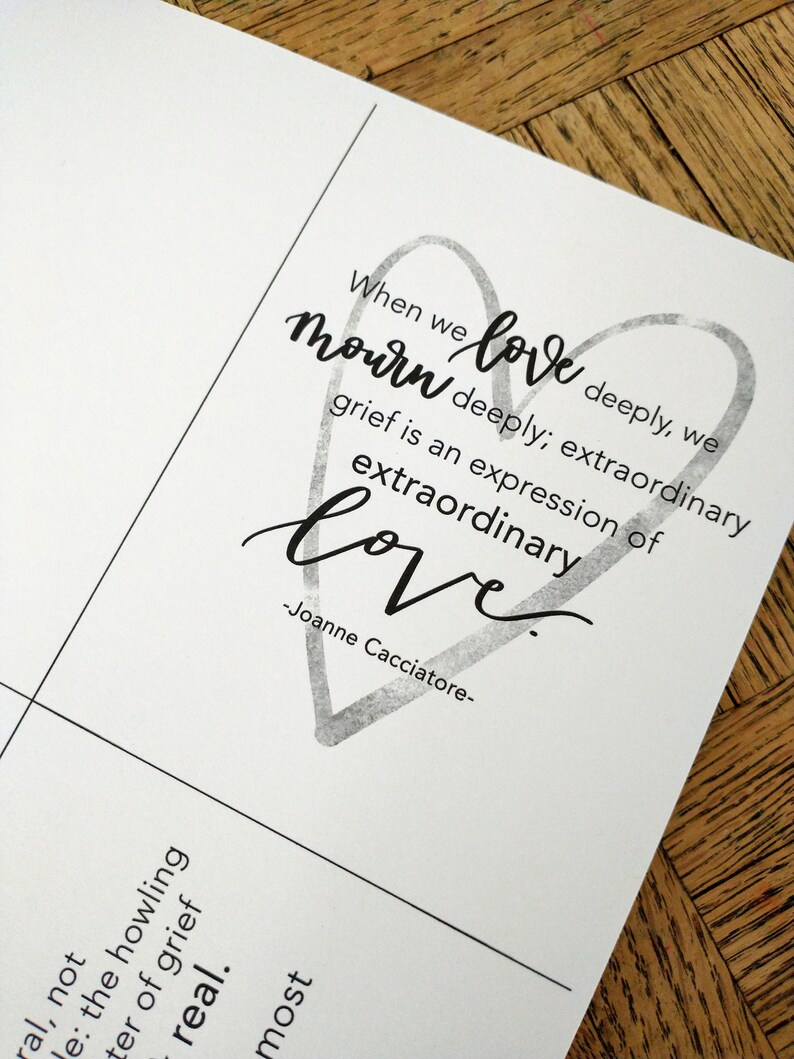 When we love deeply, we
mourn deeply; extraordinary
grief is an expression of
extraordinary
love.
-Joanne Cacciatore-
not
the howling
of grief
real.
most